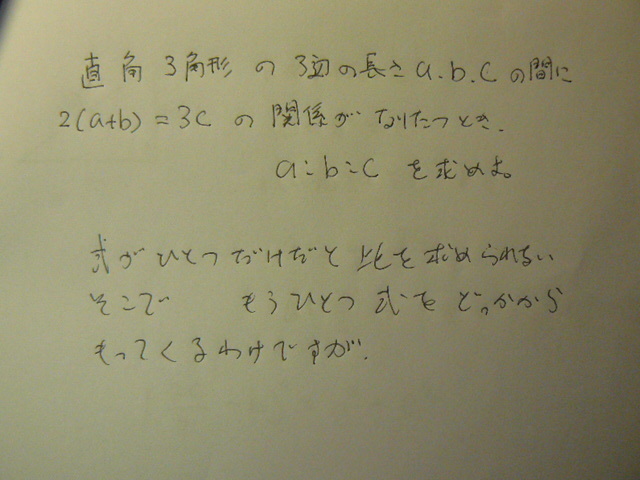 直角3角形の3辺の長さa.b.cの間に
2(a+b)=3cの関係がなりたつとき.
a:b:cを求めよ。
式がひとつだけだと比を求められない
そこで もうひとつ式をどっかから
もってくるわけですが.